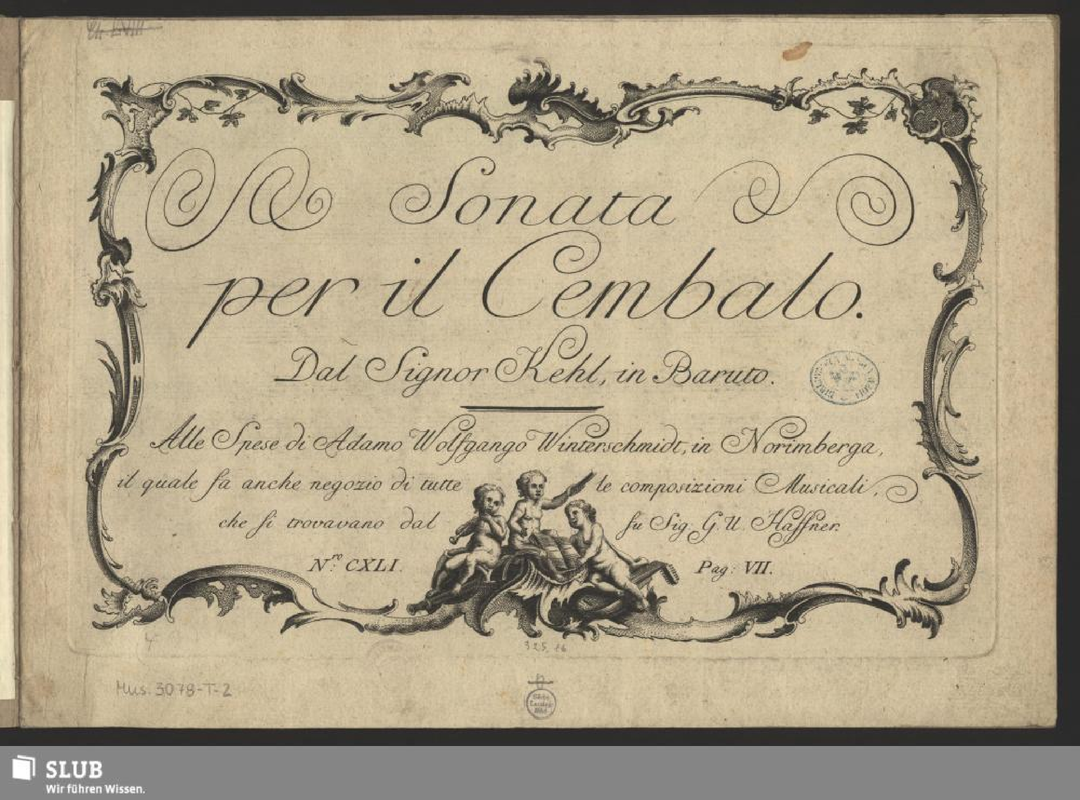 Sonata
per il Cembalo.
Dal Signor Kehl, in Baruto.
Alle Spese di Adamo Wolfgango Winterschmidt, in Norimberga,
il quale fa anche negozio di tutte le composizioni Musicali,
che si trovavano dal fu Sig. G. U. Haffner.
Nro. CXLI. Pag: VII.
325. 16
Mus. 3078-T-2
Sächs.
Landes-
Bibl.
SLUB
Wir führen Wissen.